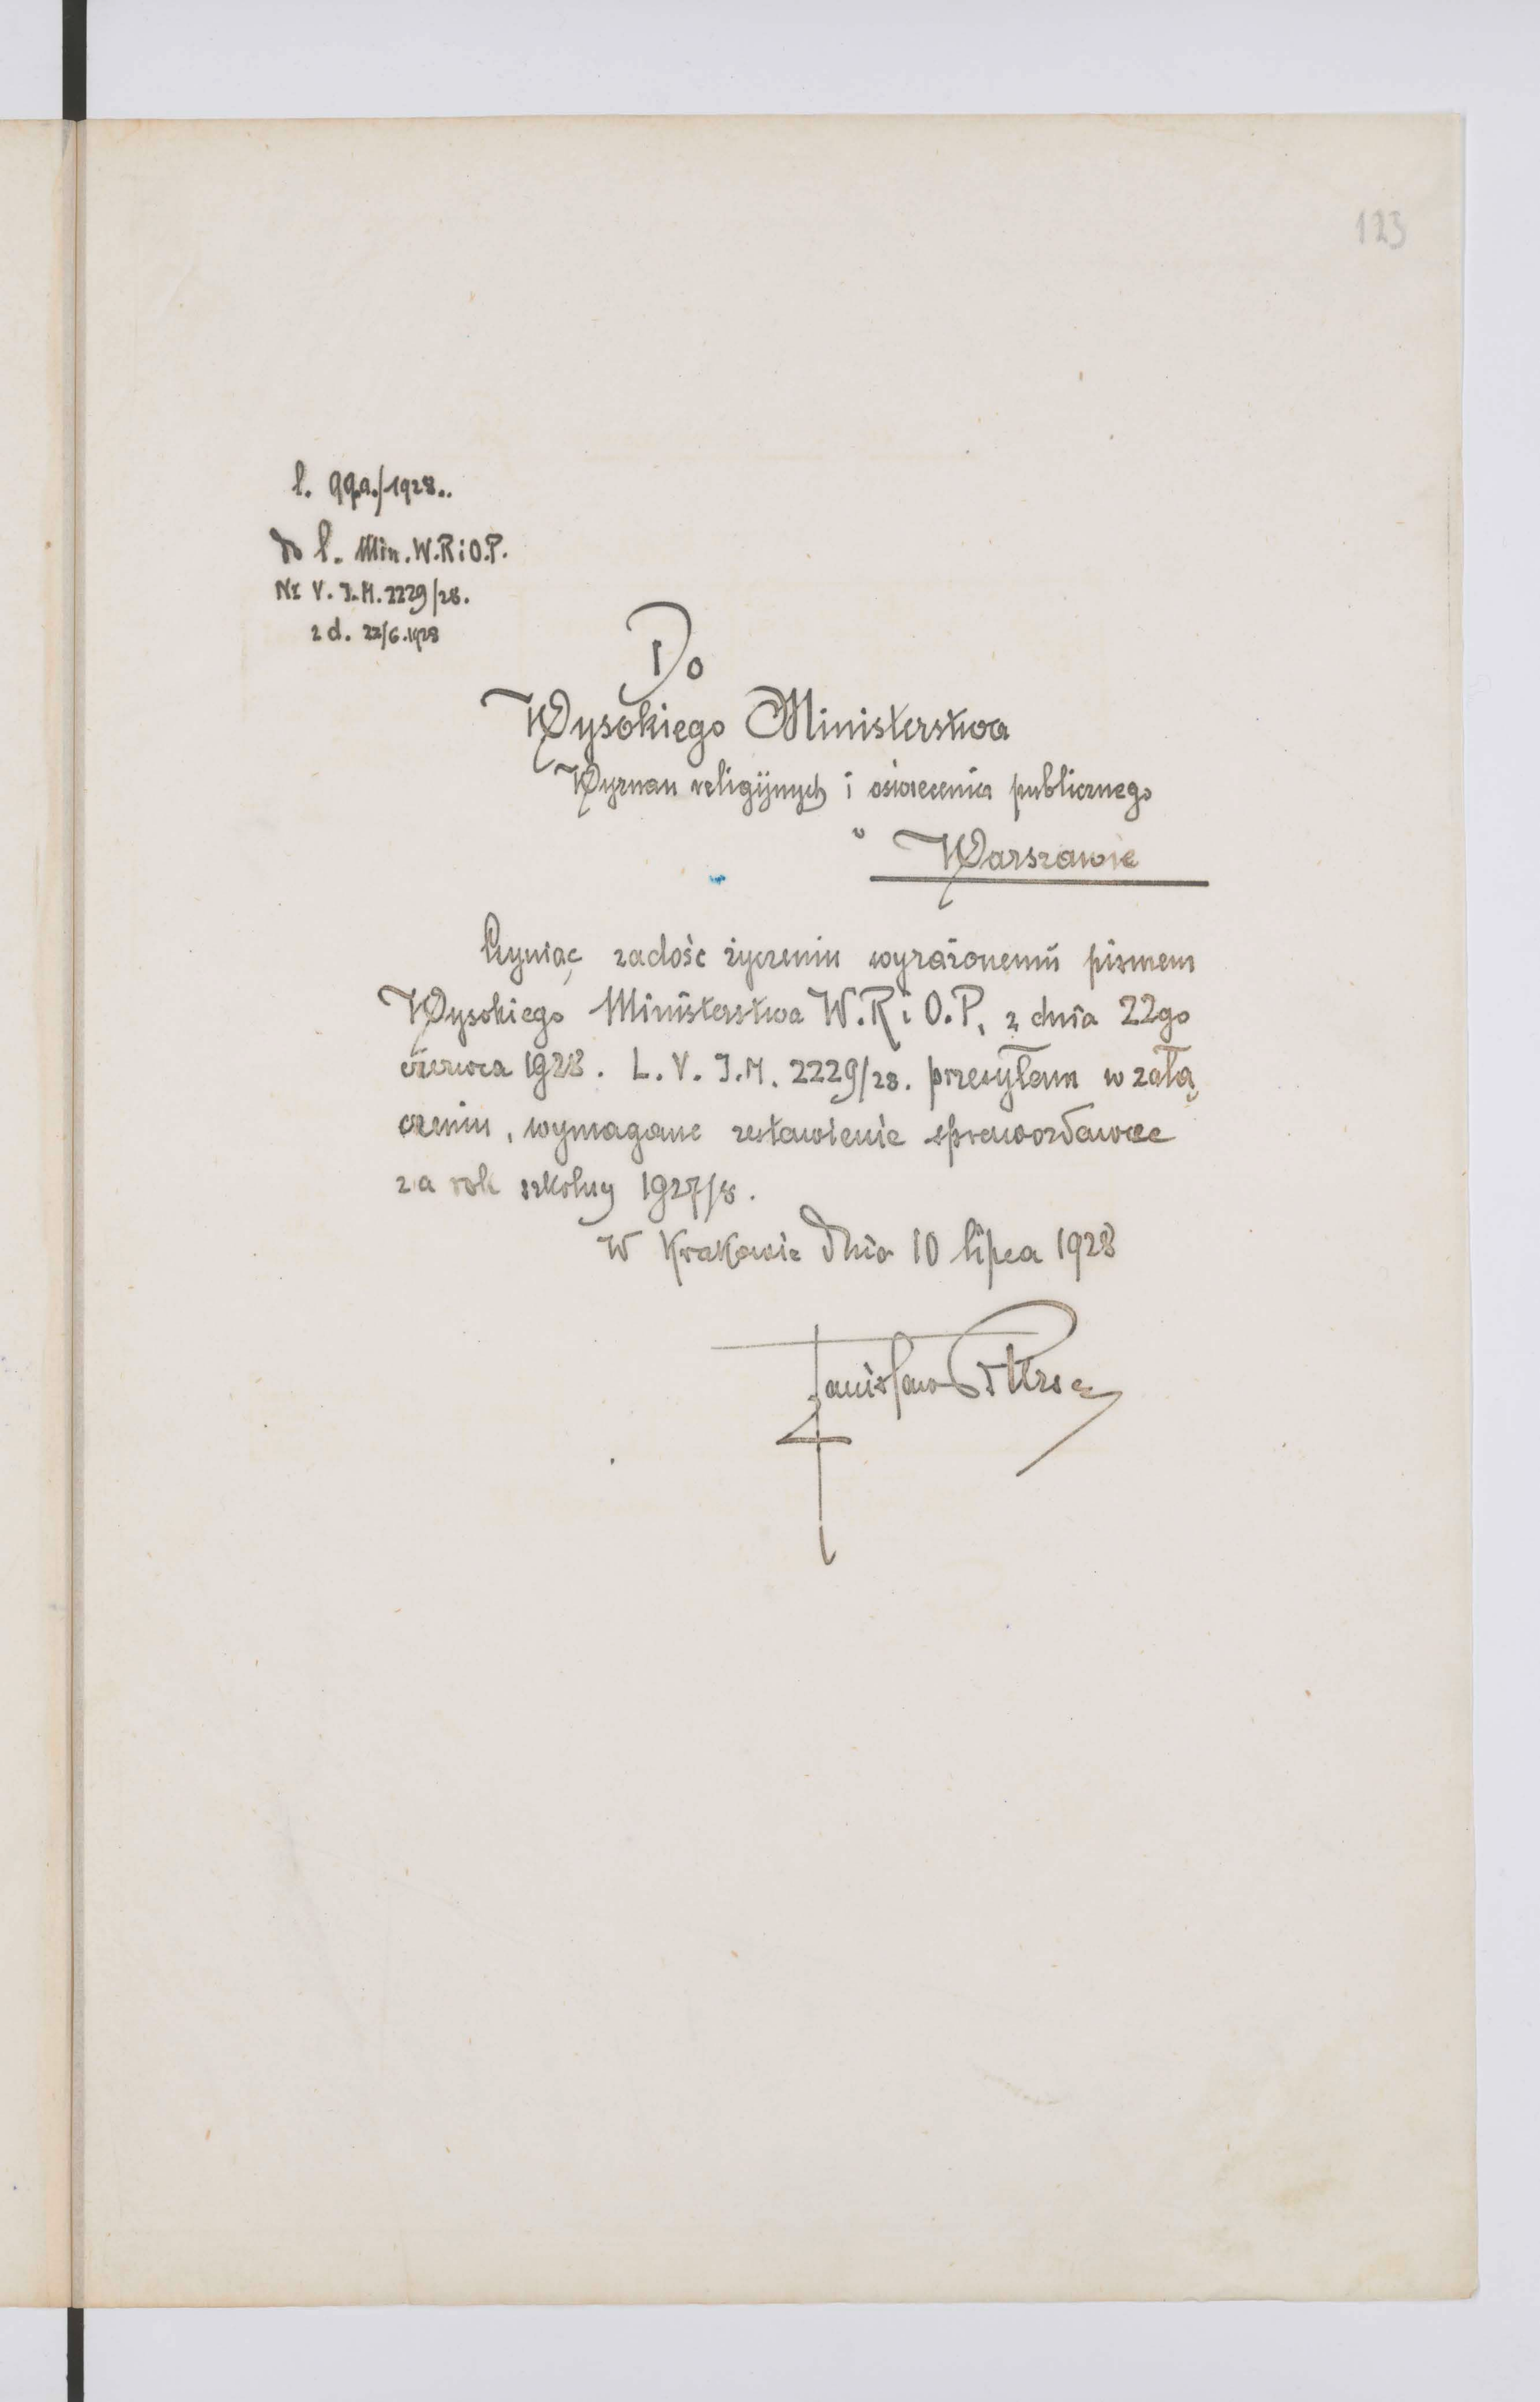 123
l. 99.a./1928..
do l. Min. W.R i O.P.
Nr V. J.M. 2229/28.
z d. 22/6.1928
Do
Wysokiego Ministerstwa
Wyznan religijnych i oświecenia publicznego
w Warszawie
Czyniąc zadość życzeniu wyrażonemu pismem
Wysokiego Ministerstwa W.R i O.P. z dnia 22go
czerwca 1928. L. V. J.M. 2229/28. przesyłam w załą
czeniu, wymagane zestawienie sprawozdawcze
za rok szkolny 1927/8.
W Krakowie dnia 10 lipca 1928
Stanisław